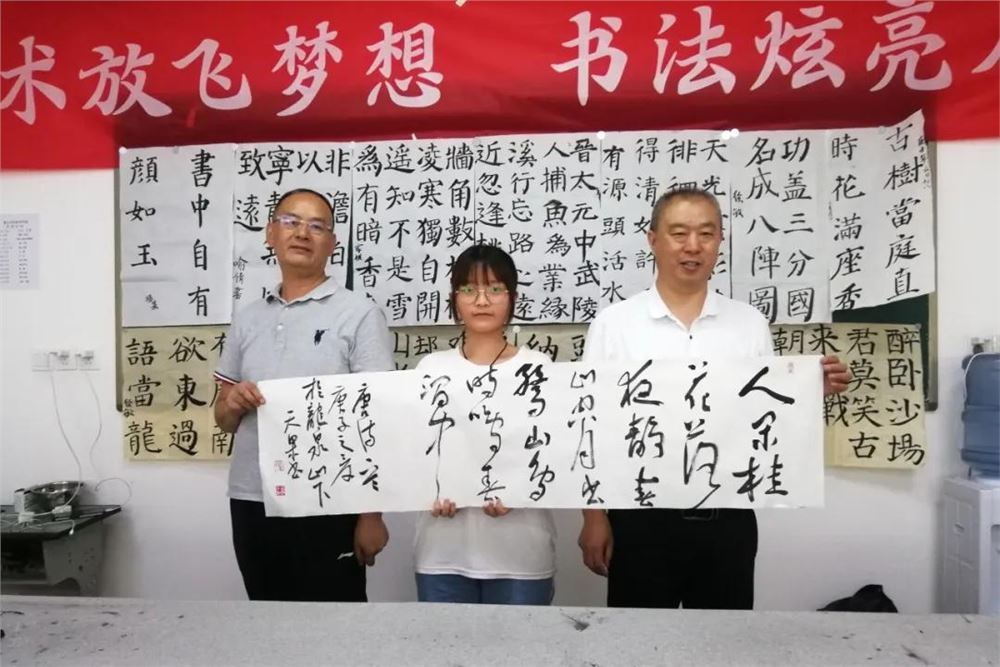 术放飞梦想 书法炫亮人
古樹當庭直
時花滿座香
功盖三分國
名成八陣圖
天光
徘徊
得清如許
有源頭活水
晉太元中武陵
人捕魚為業緣
溪行忘路之遠
近忽逢桃
牆角數枝
凌寒獨自開
遥知不是雪
為有暗香
非澹泊
以
寧靜
致遠
喻倩書
書中自有
顔如玉
醉卧沙場
君莫笑古
來
戰
朝
納
南
欲東過
語當龍
人闲桂
花落
夜静春
山空月出
驚山鳥
時鳴春
澗中
唐诗
庚子之夏
於龍泉山下